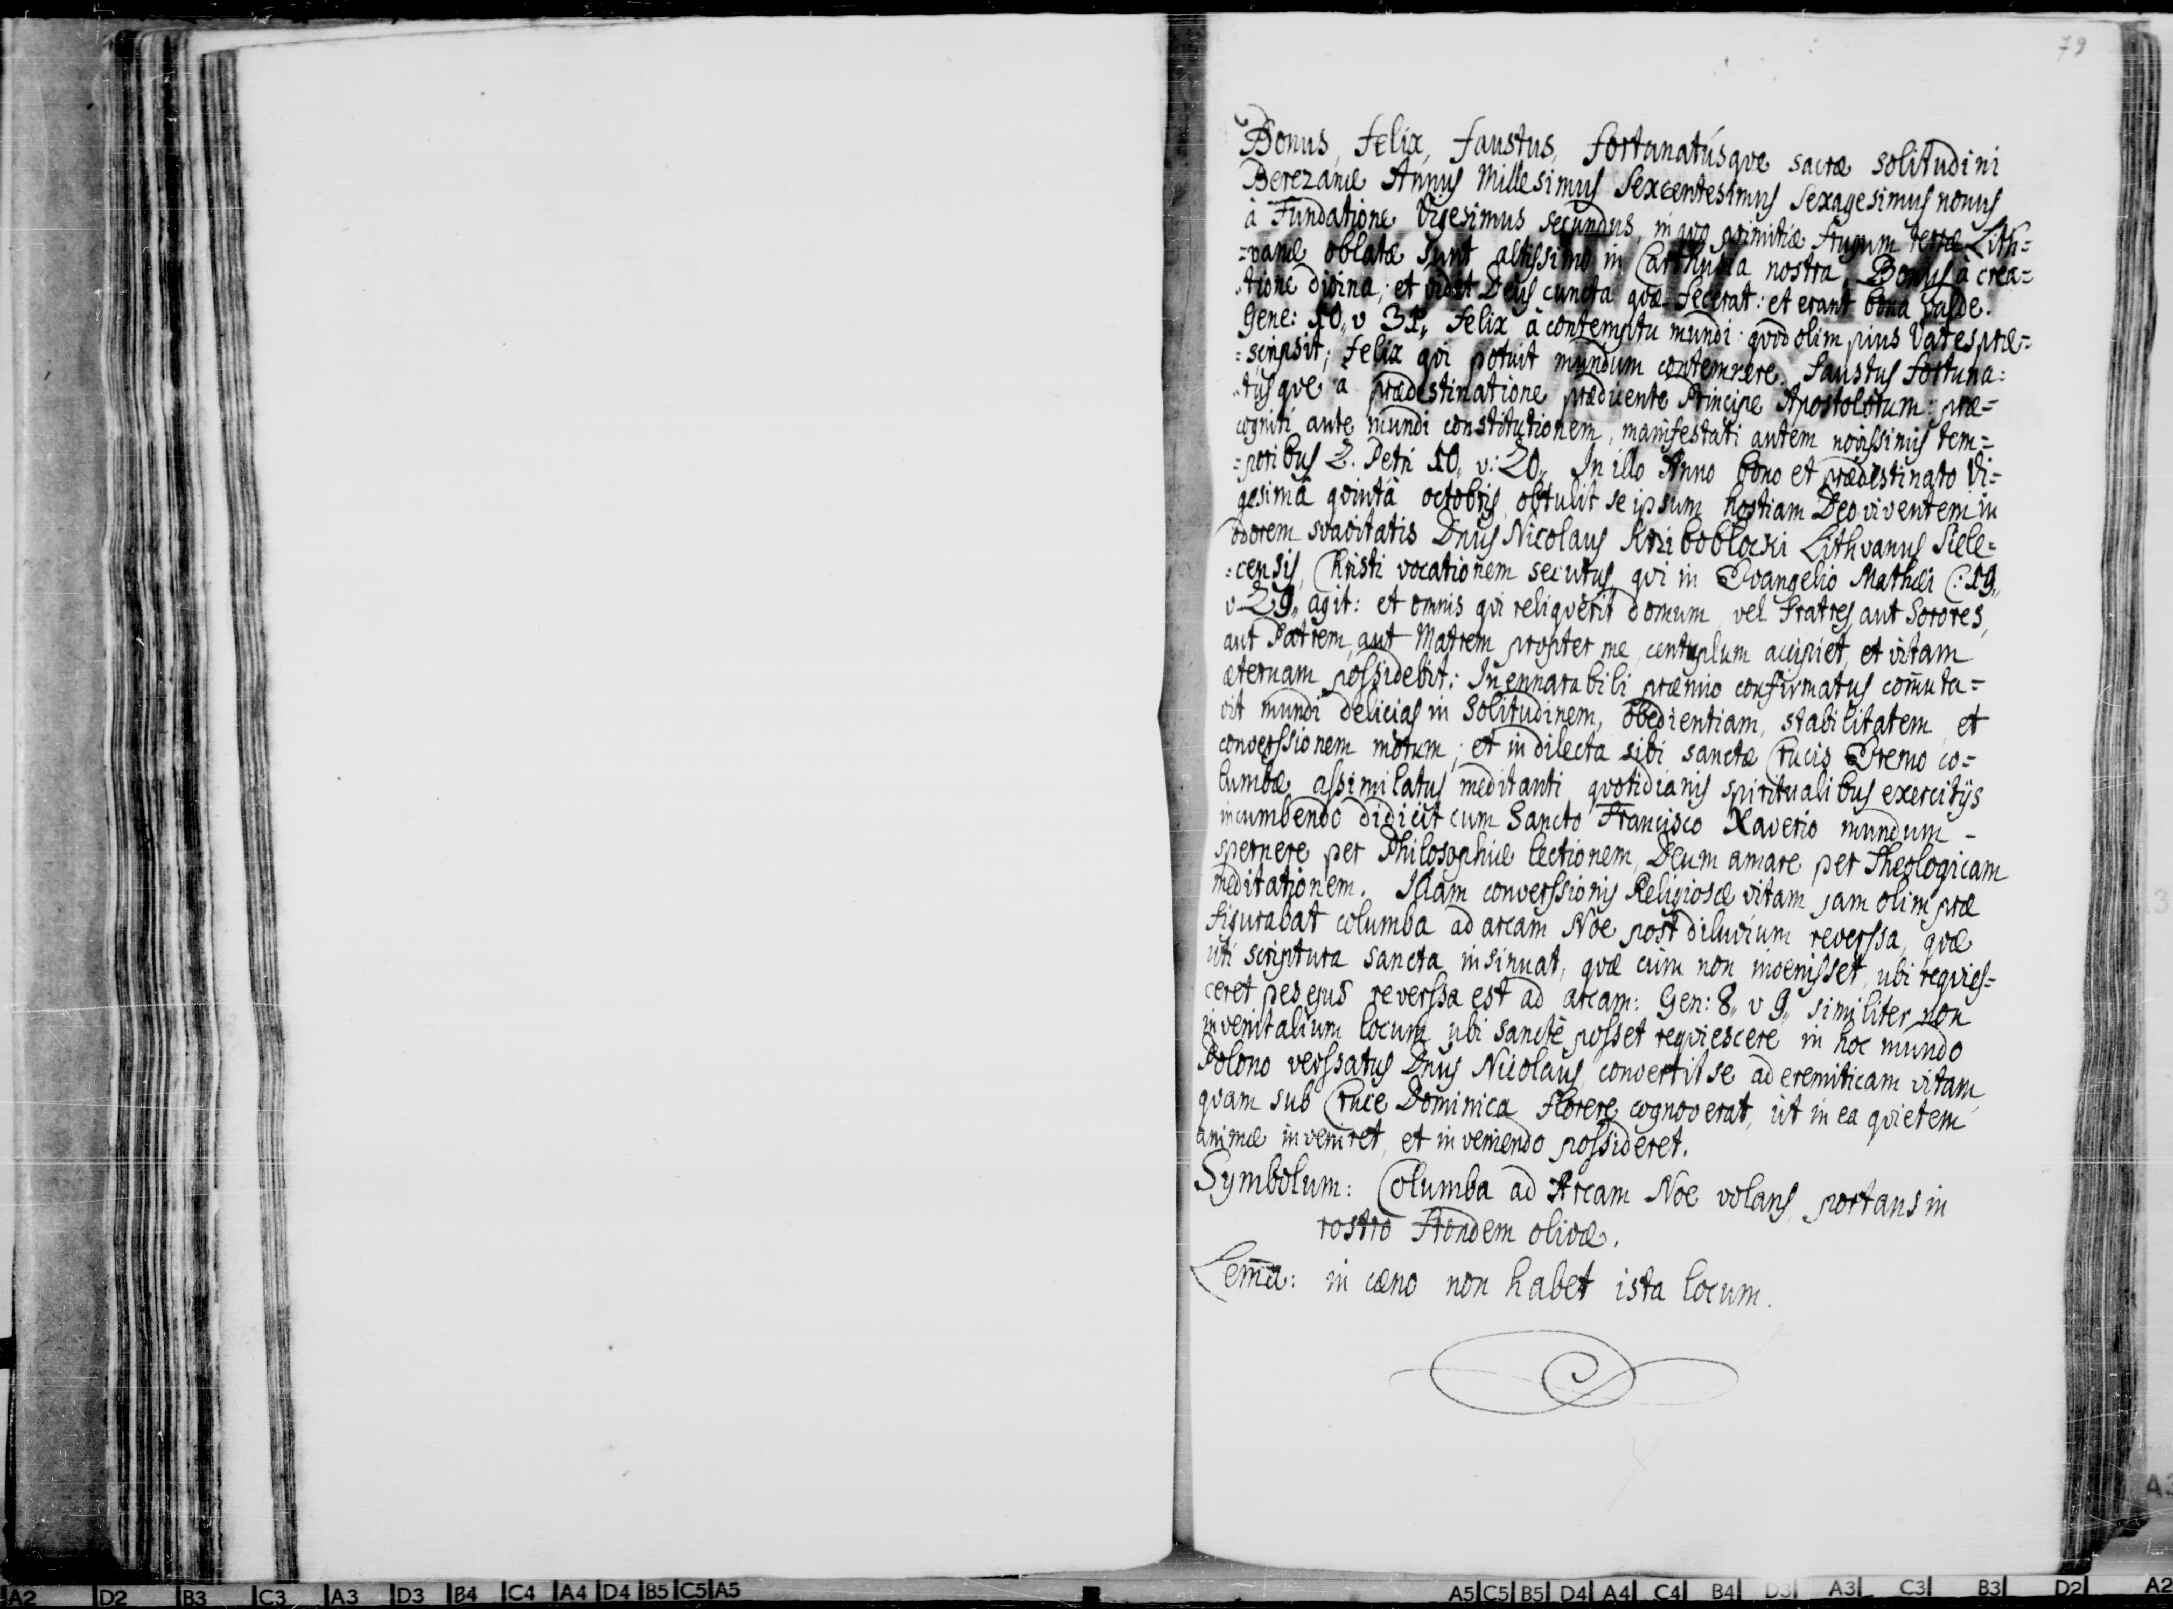 79
Bonus, felix, faustus, fortunatúsque sacræ solitudini
Berezanæ Annus Millesimus Sexcentesimus Sexagesimus nonus
à Fundatione Vigesimus secundus, in quo primitiæ frugum terræ Lith=
=vanæ oblatæ sunt altissimo in Carthusia nostra, Bonus à crea=
=tione divina; et vidit Deus cuncta quæ fecerat: et erant bona valde.
Gene: 10,, v 31,, felix à contemptu mundi quod olim pius Vates præ=
=scripsit; felix qui potuit mundum contemnere. Faustus fortuna=
=tusque a prædestinatione præducente Principe Apostolorum: præ=
cogniti ante mundi constitutionem, manifestati autem novissimis tem=
=poribus 2. Petri 10,, v: 20,, In illo Anno bono et prædestinato Vi=
gesimâ quintâ octobris obtulit se ipsum hostiam Deo viventem in
odorem svavitatis Dnus Nicolaus Kriboblocki Lithvanus Siele=
=censis, Christi vocationem secutus, qui in Evangelio Mathæi C: 19,,
v 29,, agit: et omnis qui reliquerit domum, vel Fratres, aut Sorores,
aut Patrem, aut Matrem propter me, centuplum accipiet, et vitam
æternam possidebit: Inennarabili præmio confirmatus com̃uta=
vit mundi delicias in Solitudinem, obedientiam, stabilitatem, et
converssionem morum; et in dilecta sibi sanctæ Crucis Eremo co=
lumbæ assimilatus meditanti quotidianis spiritualibus exercitijs
incumbendo didicit cum Sancto Francisco Xaverio mundum -
spernere per Philosophiæ lectionem, Deum amare per Theologicam
meditationem. Illam converssionis Religiosæ vitam jam olim præ
figurabat columba ad arcam Noe post diluvium reverssa, quæ
uti scriptura sancta insinuat, quæ cum non invenisset, ubi requies=
ceret pes ejus reverssa est ad arcam: Gen: 8,, v 9,, similiter non
invenit alium locum ubi sanctè posset requiescere in hoc mundo
Polono verssatus Dnus Nicolaus, convertit se ad eremiticam vitam,
quam sub Cruce Dominica florere cognoverat, ut in ea quietem
animæ inveniret, et inveniendo possideret.
Symbolum: Columba ad Arcam Noe volans, portans in
rostro frondem olivæ.
Lem̃a: in cæno non habet ista locum.
A2 D2 B3 C3 A3 D3 B4 C4 A4 D4 B5 C5 A5
A5 C5 B5 D4 A4 C4 B4 D3 A3 C3 B3 D2 A2